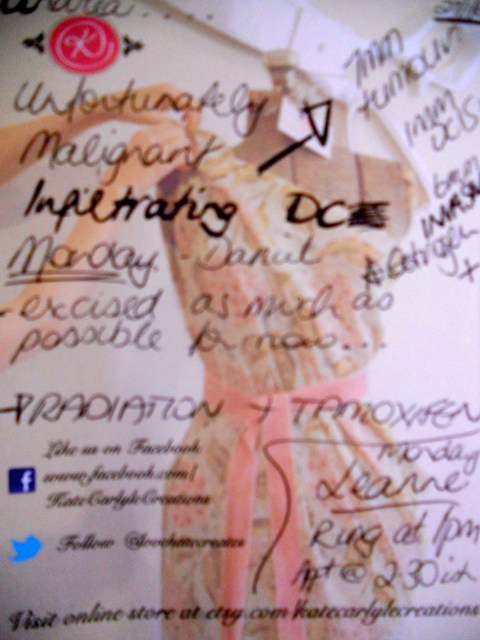 K
Unfortunately
Malignant
Infiltrating DC
Monday - Daniel
- excised as much as
possible for now....
7mm
tumour
1mm
DCIS
6mm
Estrogen
+
RADIATION + TAMOXIFEN
Like us on Facebook
www.facebook.com/
KateCarlyleCreations
Follow @lovekatecreates
Monday
Leanne
Ring at 1pm
Apt @ 2.30ish
Visit online store at etsy.com/katecarlylecreations